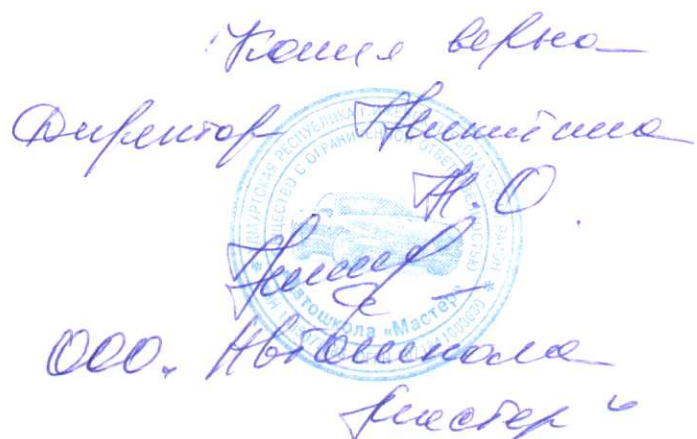 Копия верна
Директор Никитина
Н.О.
ООО. Автошкола
Мастер"
УДМУРТСКАЯ РЕСПУБЛИКА
ОБЩЕСТВО С ОГРАНИЧЕННОЙ ОТВЕТСТВЕННОСТЬЮ
Автошкола «Мастер»